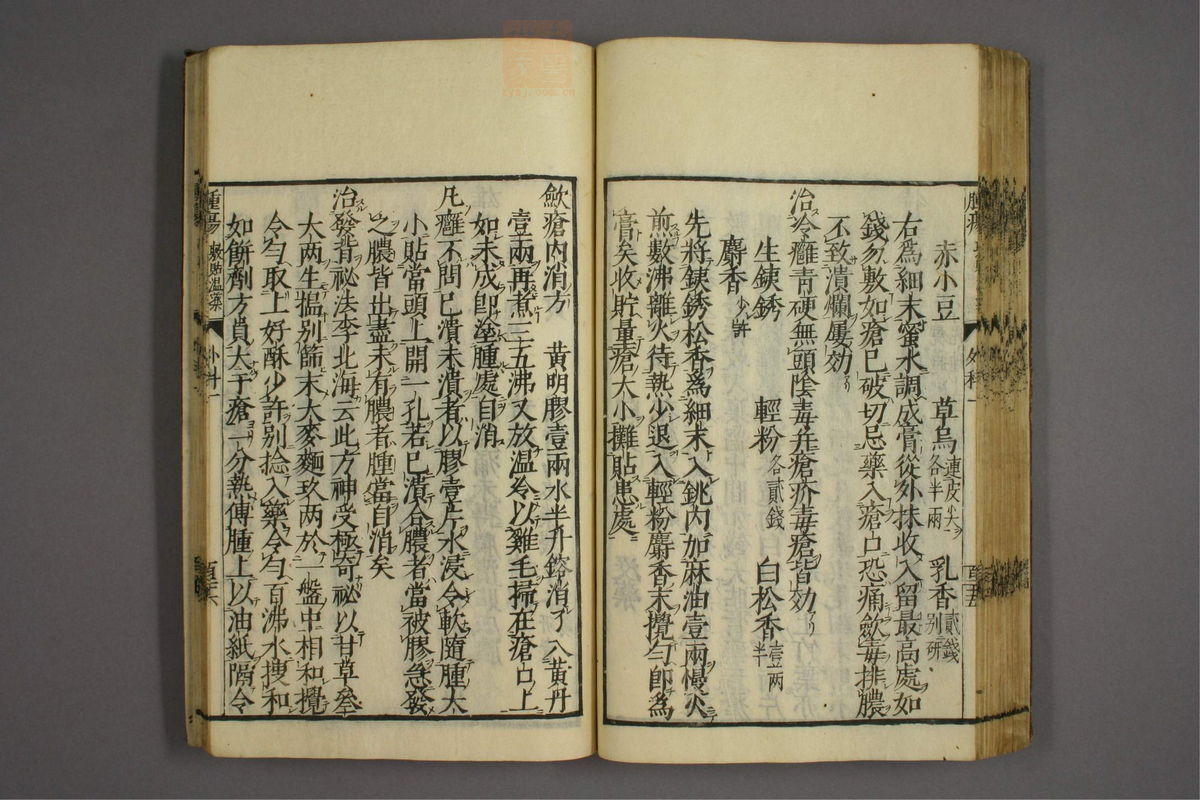 赤小豆　草烏連皮尖各半兩　乳香貳錢别研
右爲細末蜜水調成膏從外抹收入留最高處如
錢勿敷如瘡已破切忌藥入瘡口恐痛斂毒排膿
不致潰爛屢効
治冷癰青硬無頭陰毒并瘡疥毒瘡皆効
生鉄銹　輕粉各貳錢　白松香壹两半
麝香少許
先將鉄銹松香爲細末入銚内加麻油壹兩慢火
煎數沸離火待熱少退入輕粉麝香末攪勻即爲
膏矣收貯量瘡大小攤貼患處
斂瘡内消方　黄明膠壹兩水半升鎔消了入黄丹
壹兩再煮三五沸又放温冷以雞毛掃在瘡口上
如未成即塗腫處自消
凡癰不問已潰未潰者以膠壹片水浸令軟隨腫大
小貼當頭上開一孔若已潰合膿者當被膠急發
之膿皆出盡未有膿者腫當自消矣
治發背祕法李北海云此方神受極奇祕以甘草叄
大两生搵别篩末大麥麵玖两於一盤中相和攪
令勻取上好酥少許别捻入藥令勻百沸水搜和
如餅劑方員大于瘡一分熱傅腫上以油紙隔令
腫瘍　敷貼温藥　外科一